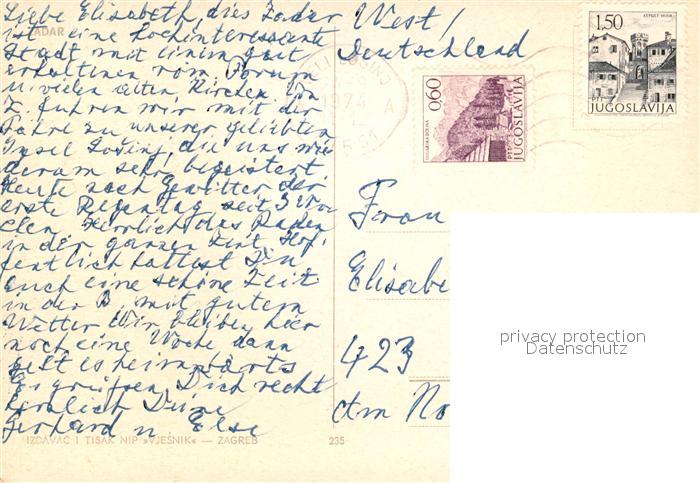 Liebe Elisabeth, dies Zadar
ist eine hochinteressante
Stadt mit einem gut
erhaltenen röm. Forum
u. vielen alten Kirchen. Von
Z. fuhren wir mit der
Fähre zu unserer geliebten
Insel Lošinj, die uns wie-
derum sehr begeistert.
Heute nach Gewitter der
erste Regentag seit 3 Wo-
chen. Herrlich das Baden
in der ganzen Zeit. Hof-
fentlich hattest Du
auch eine schöne Zeit
in der B. mit gutem
Wetter. Wir bleiben hier
noch eine Woche dann
geht es heimwärts
Es grüßen Dich recht
herzlich Deine
Gerhard u Else
ZADAR
IZDAVAČ I TISAK NIP »VJESNIK« — ZAGREB
235
West /
Deutschland
1974
A
0,60
JUGOSLAVIJA
PTT
1,50
PTT
JUGOSLAVIJA
Frau
Elisabe
423
Am No
privacy protection
Datenschutz